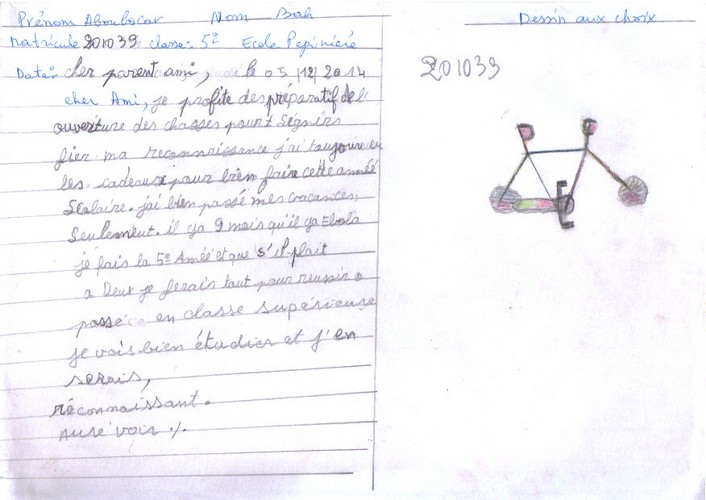 Prénom Aboubacar Nom Bah
matricule 201039 classe: 5e Ecole Pepinière
Date: cher parent ami, le 05/12/2014
cher Ami, je profite des préparatif de l
ouverture des chasses pour
fier ma reconnaissance j'ai toujours eu
les cadeaux pour bien faire cette année
Scolaire. j'ai bien passé mes vacances,
Seulement. il ya 9 mois qu'il ya Ebola
je fais la 5e Améé et que s'il-plait
a Deux je ferais tout pour reussir a
passé en classe supérieuse
je vois bien étudier et j'en
serais,
réconnaissant.
Ausé voir ./.
Dessin aux choix
201039